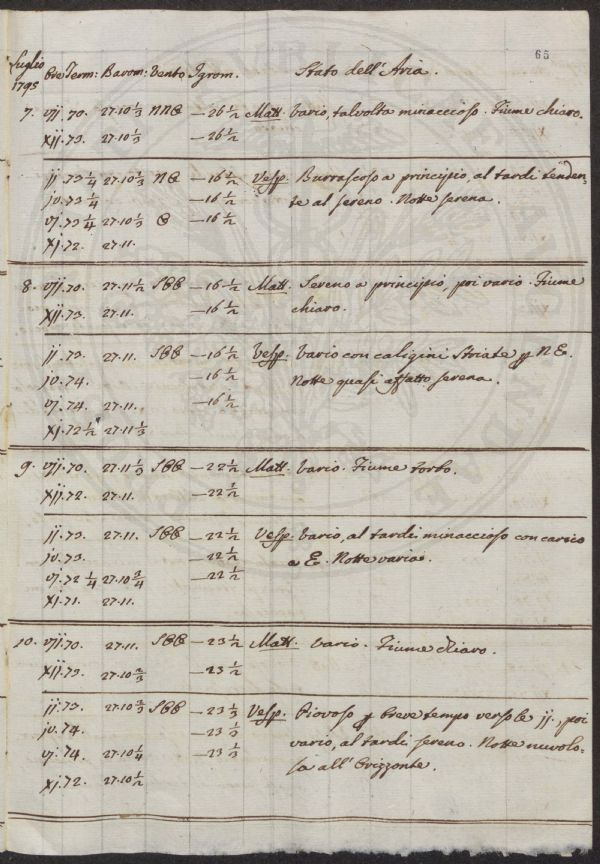 65
Luglio 1795 Ore Term: Barom: Vento Igrom. Stato dell'Aria.
7. vij. 70. 27.10 1/3 NNO —26 1/2 Matt. Vario, talvolta minaccioso. Fiume chiaro.
xij. 73. 27.10 1/3 —26 1/2
ij. 73 1/4 27.10 1/3 NO —16 1/2 Vesp. Burrascoso a principio, al tardi tenden-
iv. 73 1/4 —16 1/2 te al sereno. Notte serena.
vj. 73 1/4 27.10 1/3 O —16 1/2
xj. 72. 27.11.
8. vij. 70. 27.11 1/2 SEE —16 1/2 Matt. Sereno a principio, poi vario. Fiume
xij. 73. 27.11. —16 1/2 chiaro.
ij. 73. 27.11. SEE —16 1/2 Vesp. Vario con caligini striate p N E.
iv. 74. —16 1/2 Notte quasi affatto serena.
vj. 74. 27.11. —16 1/2
xj. 72 1/2 27.11 1/3
9. vij. 70. 27.11 1/3 SEE —22 1/2 Matt. Vario. Fiume torbo.
xij. 72. 27.11. —22 1/2
ij. 73. 27.11. SEE —22 1/2 Vesp. Vario, al tardi minaccioso con carico
iv. 73. —22 1/2 a E. Notte varia.
vj. 72 1/4 27.10 3/4 —22 1/2
xj. 71. 27.11.
10. vij. 70. 27.11. SEE —23 1/2 Matt. Vario. Fiume chiaro.
xij. 73. 27.10 2/3 —23 1/2
ij. 73. 27.10 2/3 SEE —23 1/3 Vesp. Piovoso p breve tempo verso le ij., poi
iv. 74. —23 1/3 vario, al tardi sereno. Notte nuvolo-
vj. 74. 27.10 1/4 —23 1/3 sa all'Orizzonte.
xj. 72. 27.10 1/2